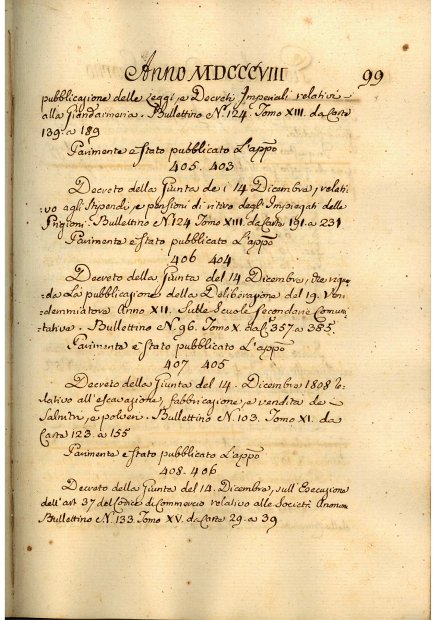 Anno MDCCCVIII 99
pubblicazione delle Leggi, e Decreti Imperiali relativi
alla Giandarmeria. Bullettino N.º 124. Tomo XIII. da Carte
139. a 189
Parimente è stato pubblicato L'appº
405. 403
Decreto della Giunta de i 14 Dicembre, relati-
vo agli Stipendi, e pensioni di ritiro degli Impiegati delle
Prigioni. Bullettino N.º 124 Tomo XIII. da Carte 191. a 231
Parimente è stato pubblicato L'appº
406 404
Decreto della Giunta del 14 Dicembre, che rigua-
da La pubblicazione della Deliberazione del 19. Ven-
demmiatora Anno XII. Sulle Scuole Secondarie Comuni-
tative. Bullettino N.º 96. Tomo X. da Cº 357 a 385.
Parimente è stato pubblicato L'appº
407 405
Decreto della Giunta del 14. Dicembre 1808 re-
lativo all'escavazione, fabbricazione, e vendita de
Salnitri, e polveri. Bullettino N. 103. Tomo XI. da
Carte 123. a 155
Parimente è stato pubblicato L'appº
408. 406
Decreto della Giunta del 14. Dicembre, sull'Esecuzione
dell'art. 37 del Codice di Commercio relativo alle Società Anonime
Bullettino N.º 133. Tomo XV. da Carte 29. a 39